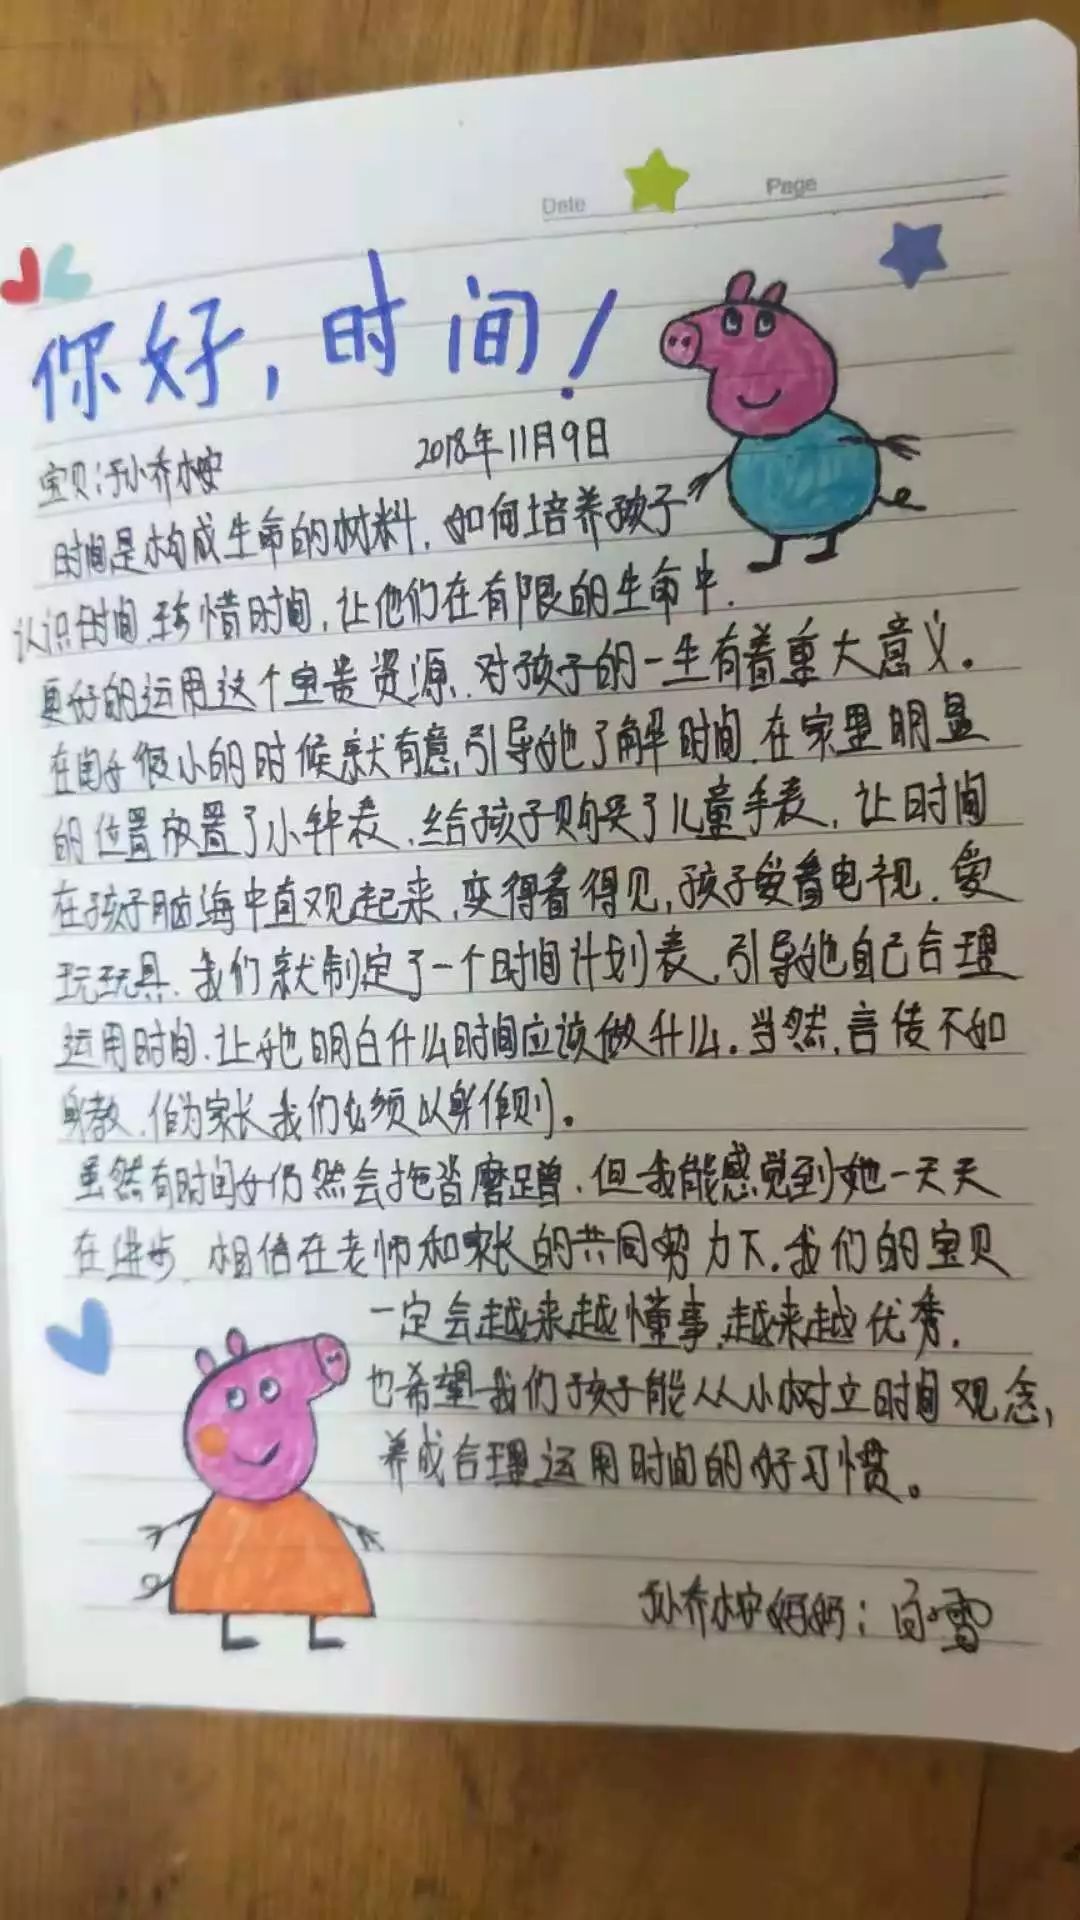 Date
Page
你好,时间!
2018年11月9日
宝贝:孙乔桉
时间是构成生命的材料,如何培养孩子
认识时间,珍惜时间,让他们在有限的生命中,
更好的运用这个宝贵资源,对孩子的一生有着重大意义。
在闺女很小的时候就有意,引导她了解时间,在家里明显
的位置放置了小钟表,给孩子购买了儿童手表,让时间
在孩子脑海中直观起来,变得看得见,孩子爱看电视,爱
玩玩具,我们就制定了一个时间计划表,引导她自己合理
运用时间,让她明白什么时间应该做什么。当然,言传不如
身教,作为家长我们必须以身作则。
虽然有时闺女仍然会拖沓磨蹭,但我能感觉到她一天天
在进步,相信在老师和家长的共同努力下,我们的宝贝
一定会越来越懂事,越来越优秀,
也希望我们孩子能从小树立时间观念,
养成合理运用时间的好习惯。
孙乔桉妈妈:白雪